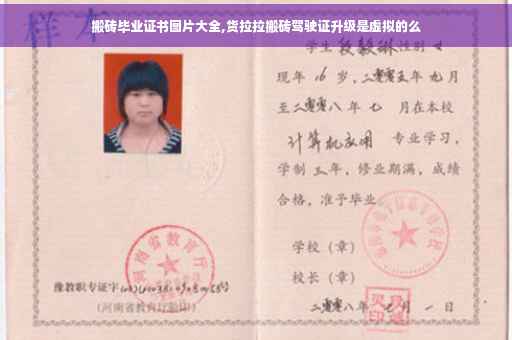 搬砖毕业证书图片大全,货拉拉搬砖驾驶证升级是虚拟的么
样本
学生段毅琳性别女
现年16岁,二零零五年九月
至二零零八年七 月在本校
计算机应用 专业学习,
学制三年,修业期满,成绩
合格,准予毕业
学校(章)
校长(章)
二零零八年 月一日
河南省教育厅
豫教职专证字
(河南省教育厅验印)